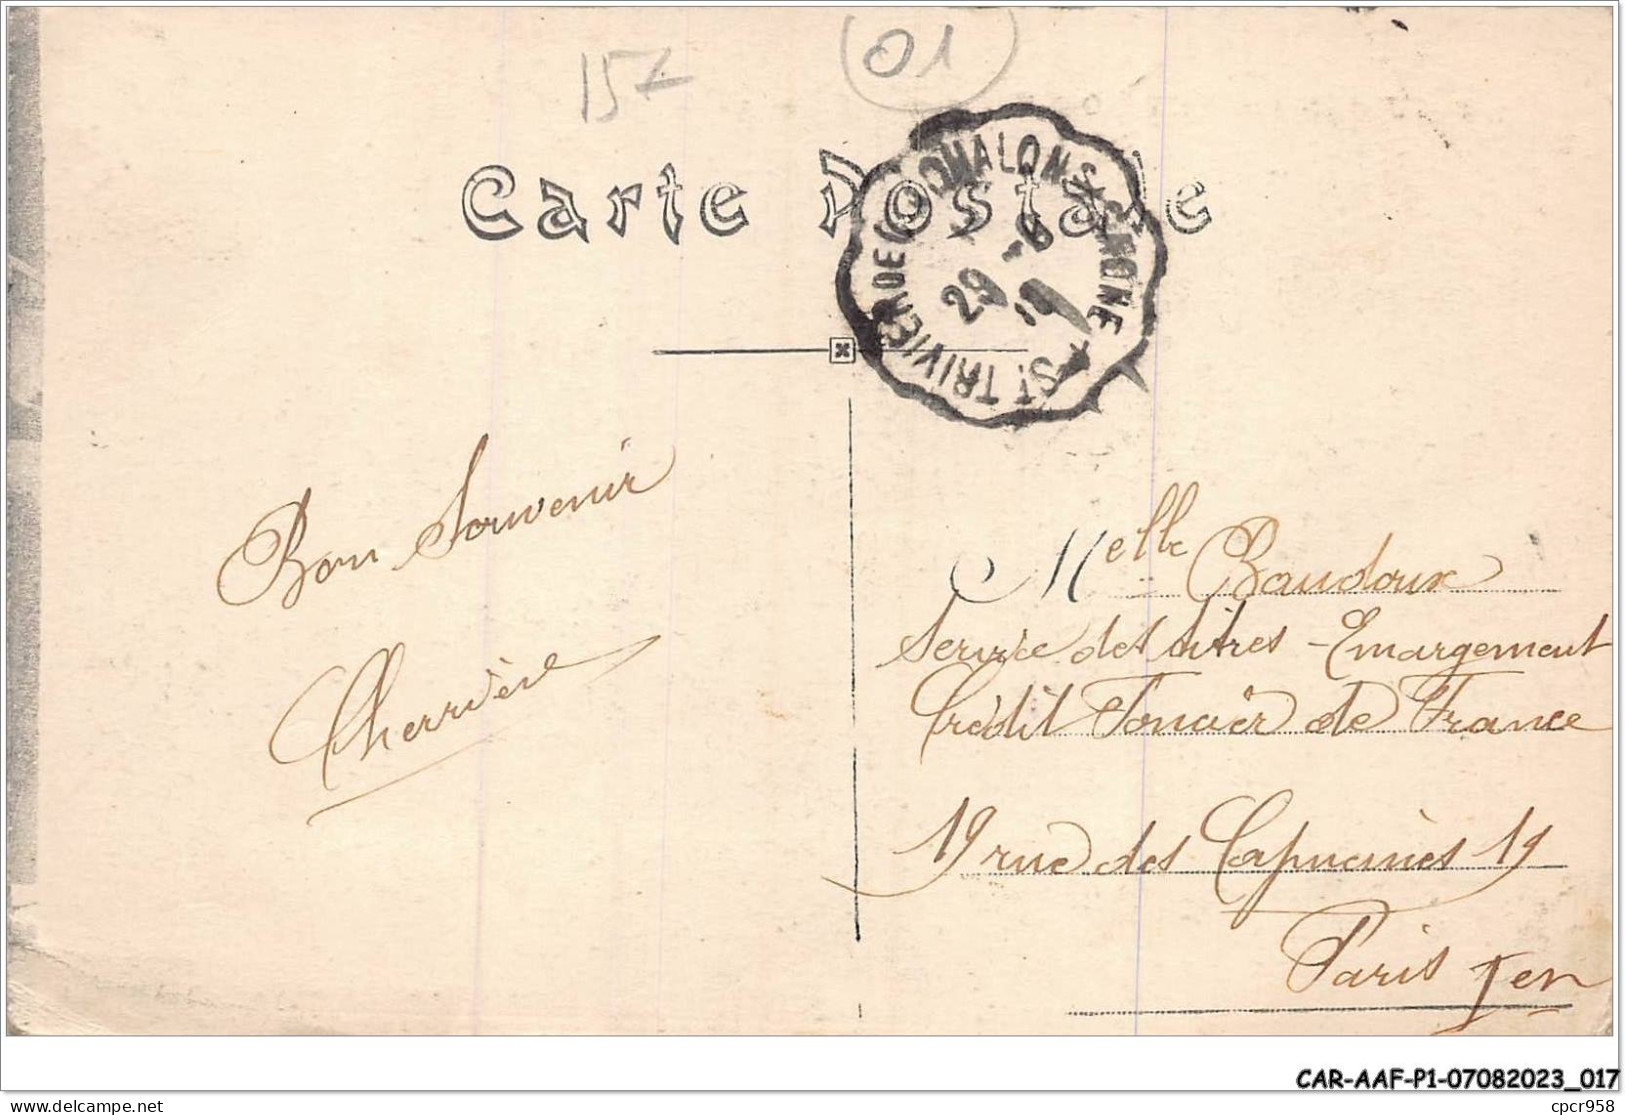 157
01
Carte Postale
ST TRIVIER DE C. À CHALON S SAONE
29 -6
Bon Souvenir
Cherrière
Melle Baudoux
Service des titres - Emargement
Crédit Foncier de France
19 rue des Capucines 19
Paris 1er
CAR-AAF-P1-07082023_017
delcampe.net
cpcr958